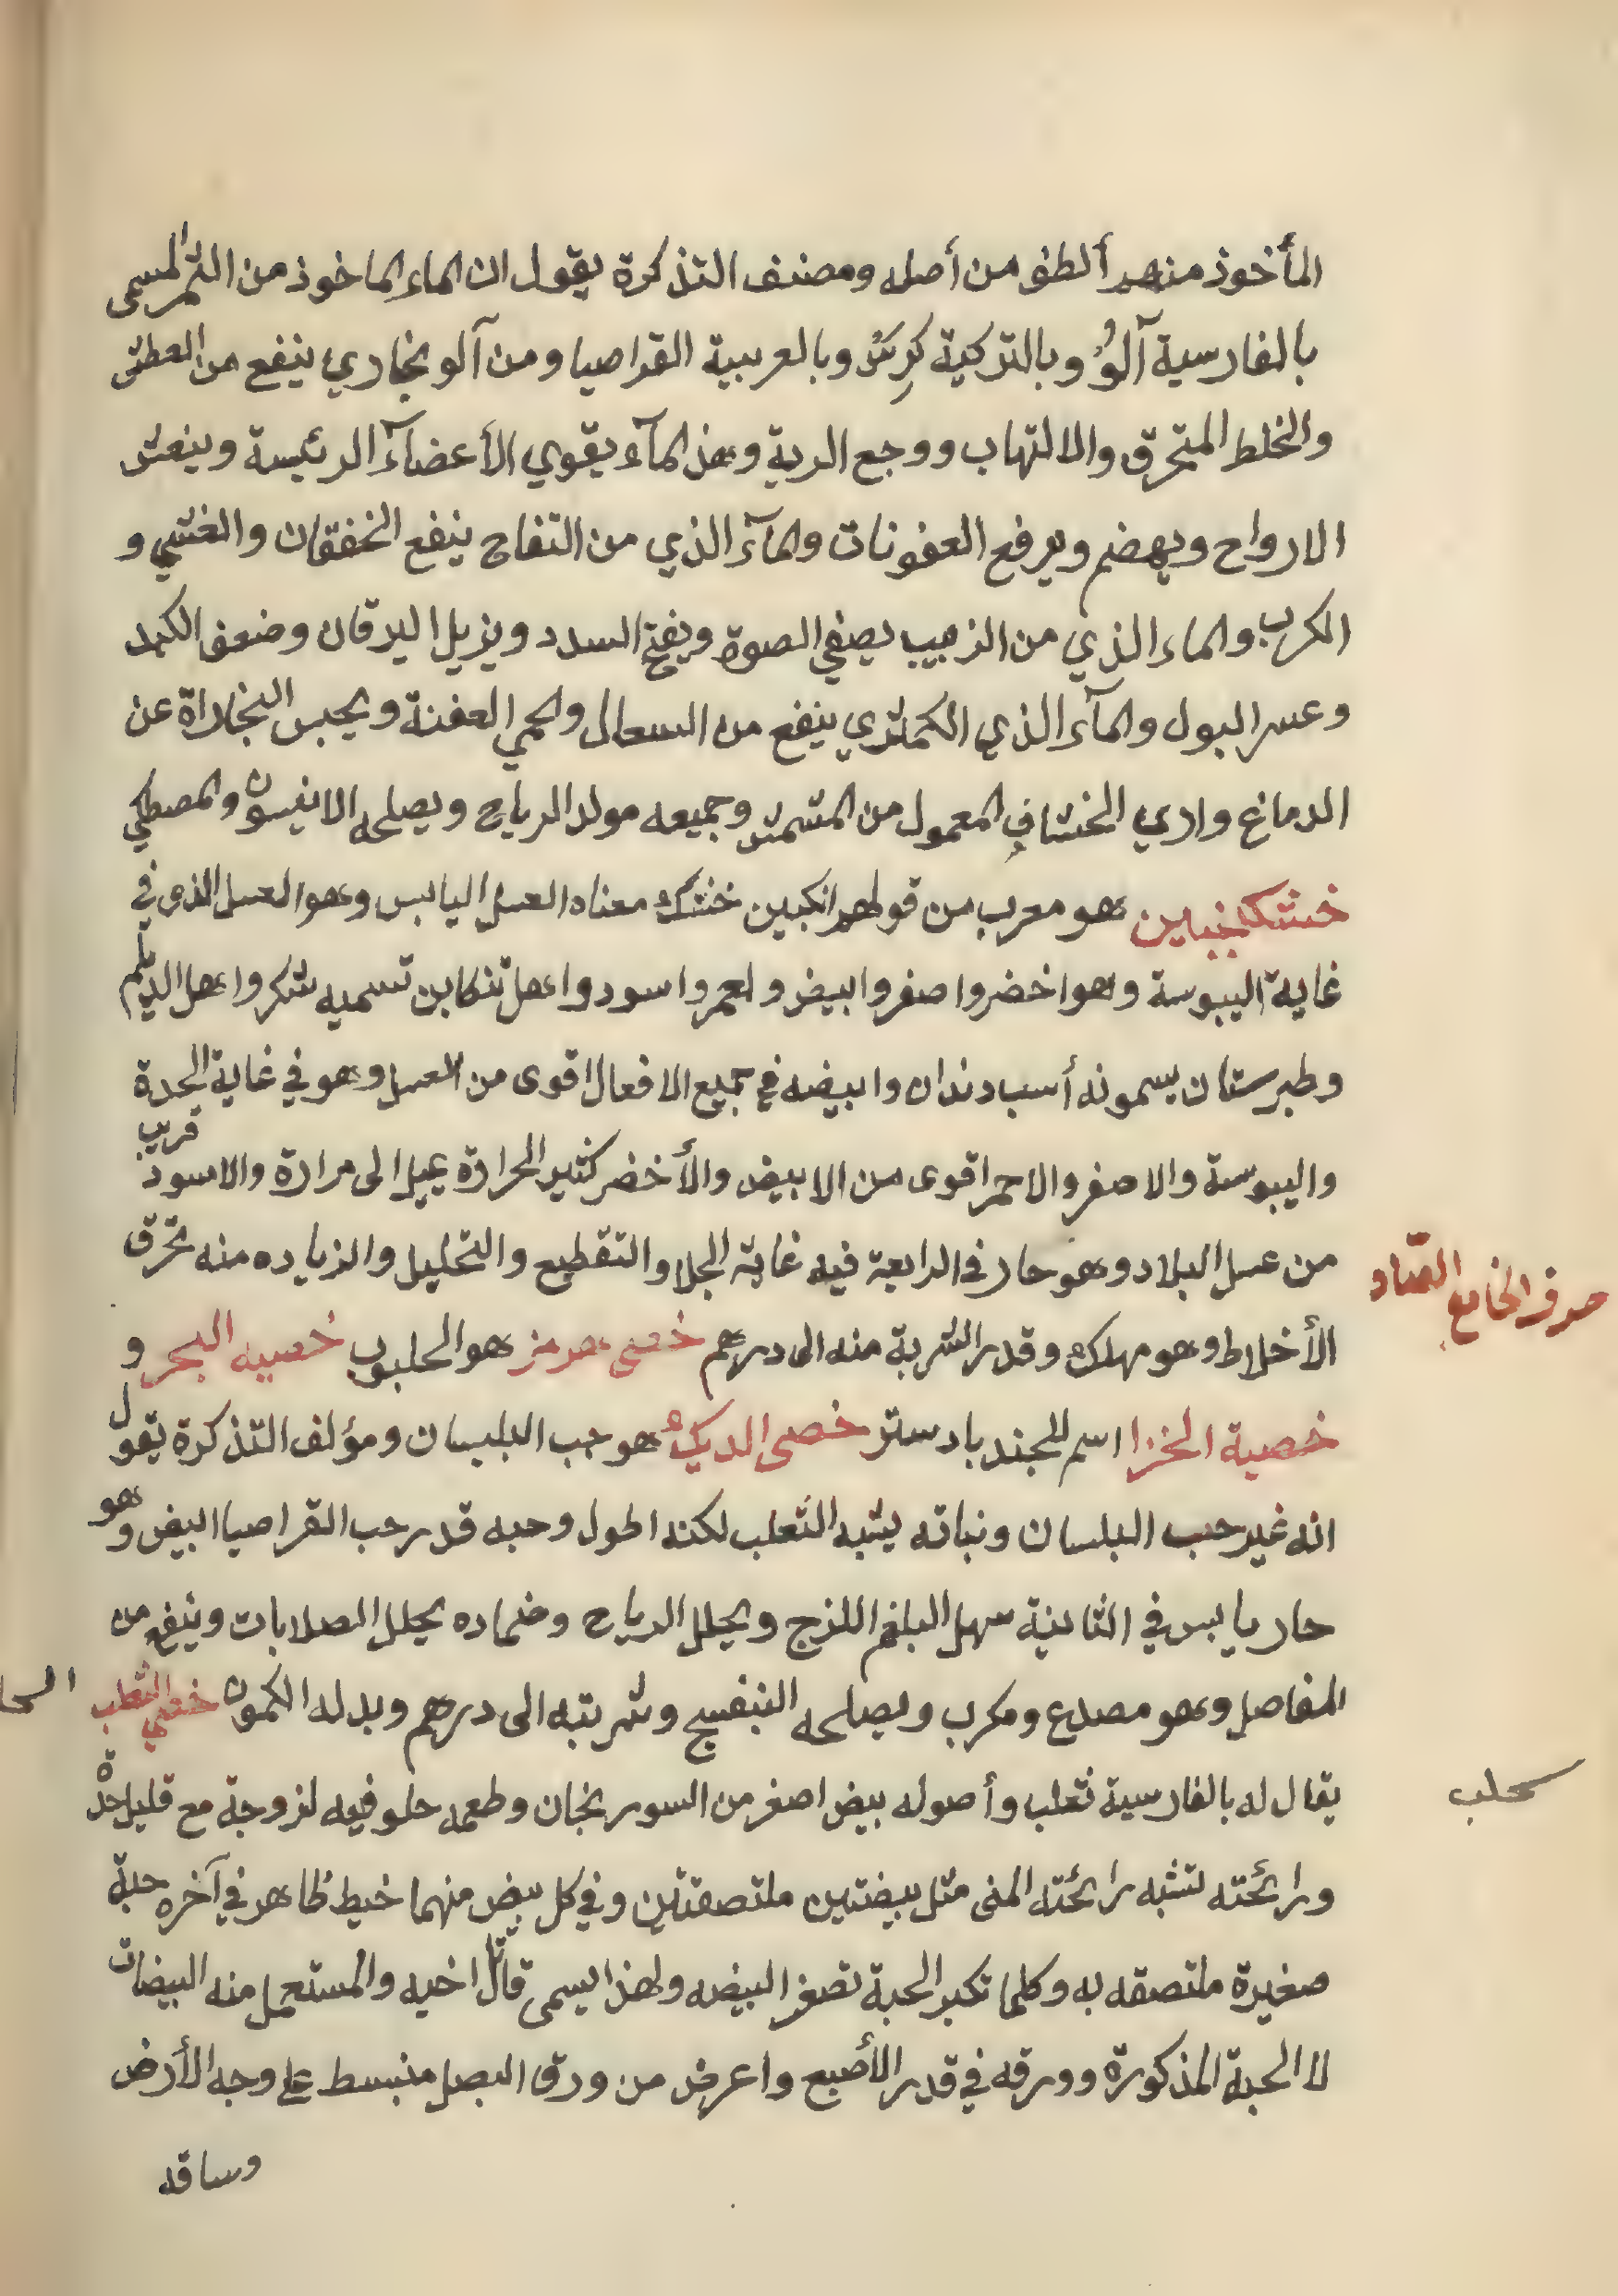 المأخوذ منهم ألطف من أصله ومصنف التذكرة يقول ان الماء الماخوذ من الثمر المسمى
بالفارسية آلوُ وبالتركية كرس وبالعربية القراصيا ومن آلو بخاري ينفع من العطش
والخلط المتحرق والالتهاب ووجع الرية وهذ المآء يقوي الأعضآء الرئيسة وينعش
الارواح ويهضم ويرفع العفونات والمآء الذي من التفاح ينفع الخفقان والغشي و
الكرب والماء الذي من الزبيب يصفي الصوة ويفتح السدد ويزيل اليرقان وضعف الكبد
وعسر البول والمآء الذي الكمثري ينفع من السعال والحمي العفنة ويحبس البخاراة عن
الدماغ واري الخشاف المعمول من المشمش وجميعه مولد الرياح ويصلحه الانيسون والمصطكي
خشكنجبين هو معرب من قولهم انكبين خشك معناه العسل اليابس وهو العسل الذى في
غاية اليبوسة وهو اخضر واصفر وابيض واحمر واسود واهل تنكابن تسميه شكر واهل الديلم
وطبرستان يسمونه أسب دندان وابيضه في جميع الافعال اقوى من العسل وهو في غاية الحدة
واليبوسة والاصفر والاحمر اقوى من الابيض والأخضر كثير الحرارة يميل الى مرارة والاسود قريب
من عسل البلاد وهو حار في الرابعة فيه غاية الجلا والتقطيع والتحليل والزياده منه تحرق
صرف الخا مع الصّاد
الأخلاط وهو مهلك وقدر الشربة منه الى درهم خصى هرمز هو الحلبوب خصيه البحر و
خصية الخزا اسم للجندبادستر خصى الديك هو حب البلبسان ومؤلف التذكرة يقول
انه غير حب البلسان ونباته يشبه الثعلب لكنه اطول وحبه قدر حب القراصيا ابيض وهو
حار يابس في الثانية سهل البلغم اللزج ويحلل الرياح وضماده يحلل الصلابات وينفع من
المفاصل وهو مصدع ومكرب ويصلحه البنفسج وشربته الى درهم وبدله الكمون خصي الثعلب
يقال له بالفارسية ثعلب وأصوله بيض اصغر من السورنجان وطعمه حلو فيه لزوجة مع قليل حدة
سحلب
ورائحته تشبه رائحته المنى مثل بيضتين ملتصقتين وفي كل بيض منهما خيط ظاهر في آخره حبة
صغيرة ملتصقه به وكلما تكبر الحبة تصغر البيضه ولهذا يسمى قاتل اخيه والمستعمل منه البيضات
لا الحبة المذكورة وورقه في قدر الأصبع واعرض من ورق البصل منبسط على وجه الأرض
وساقه